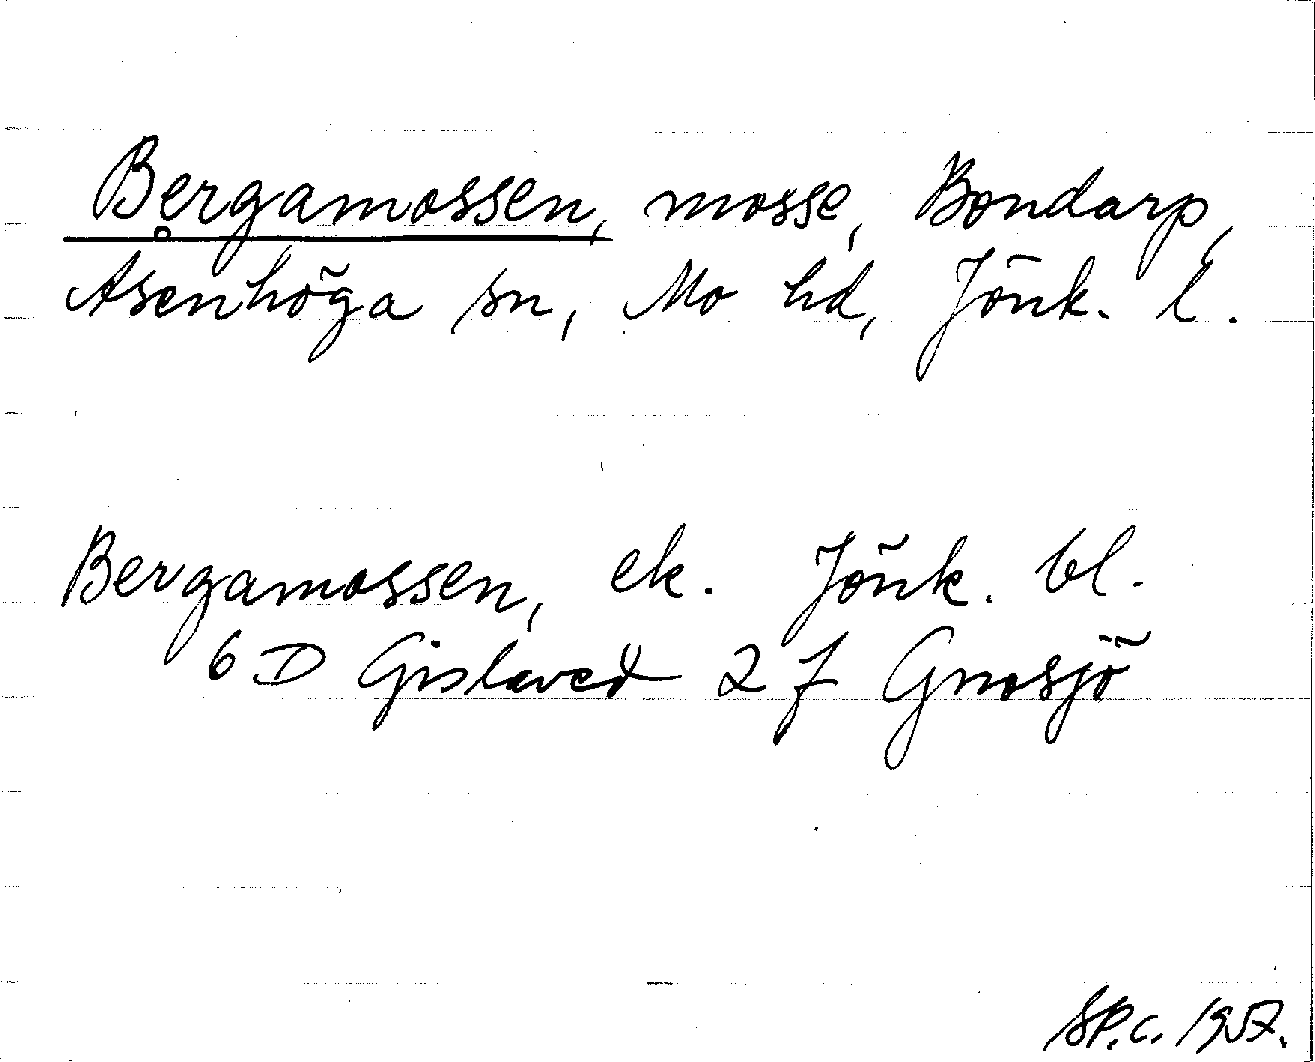 Bergamossen, mosse, Bondarp,
Åsenhöga sn, Mo hd, Jönk. l.
Bergamossen, ek. Jönk. bl.
6 D Gislaved 2 f Gnosjö
SP.c. 1957.